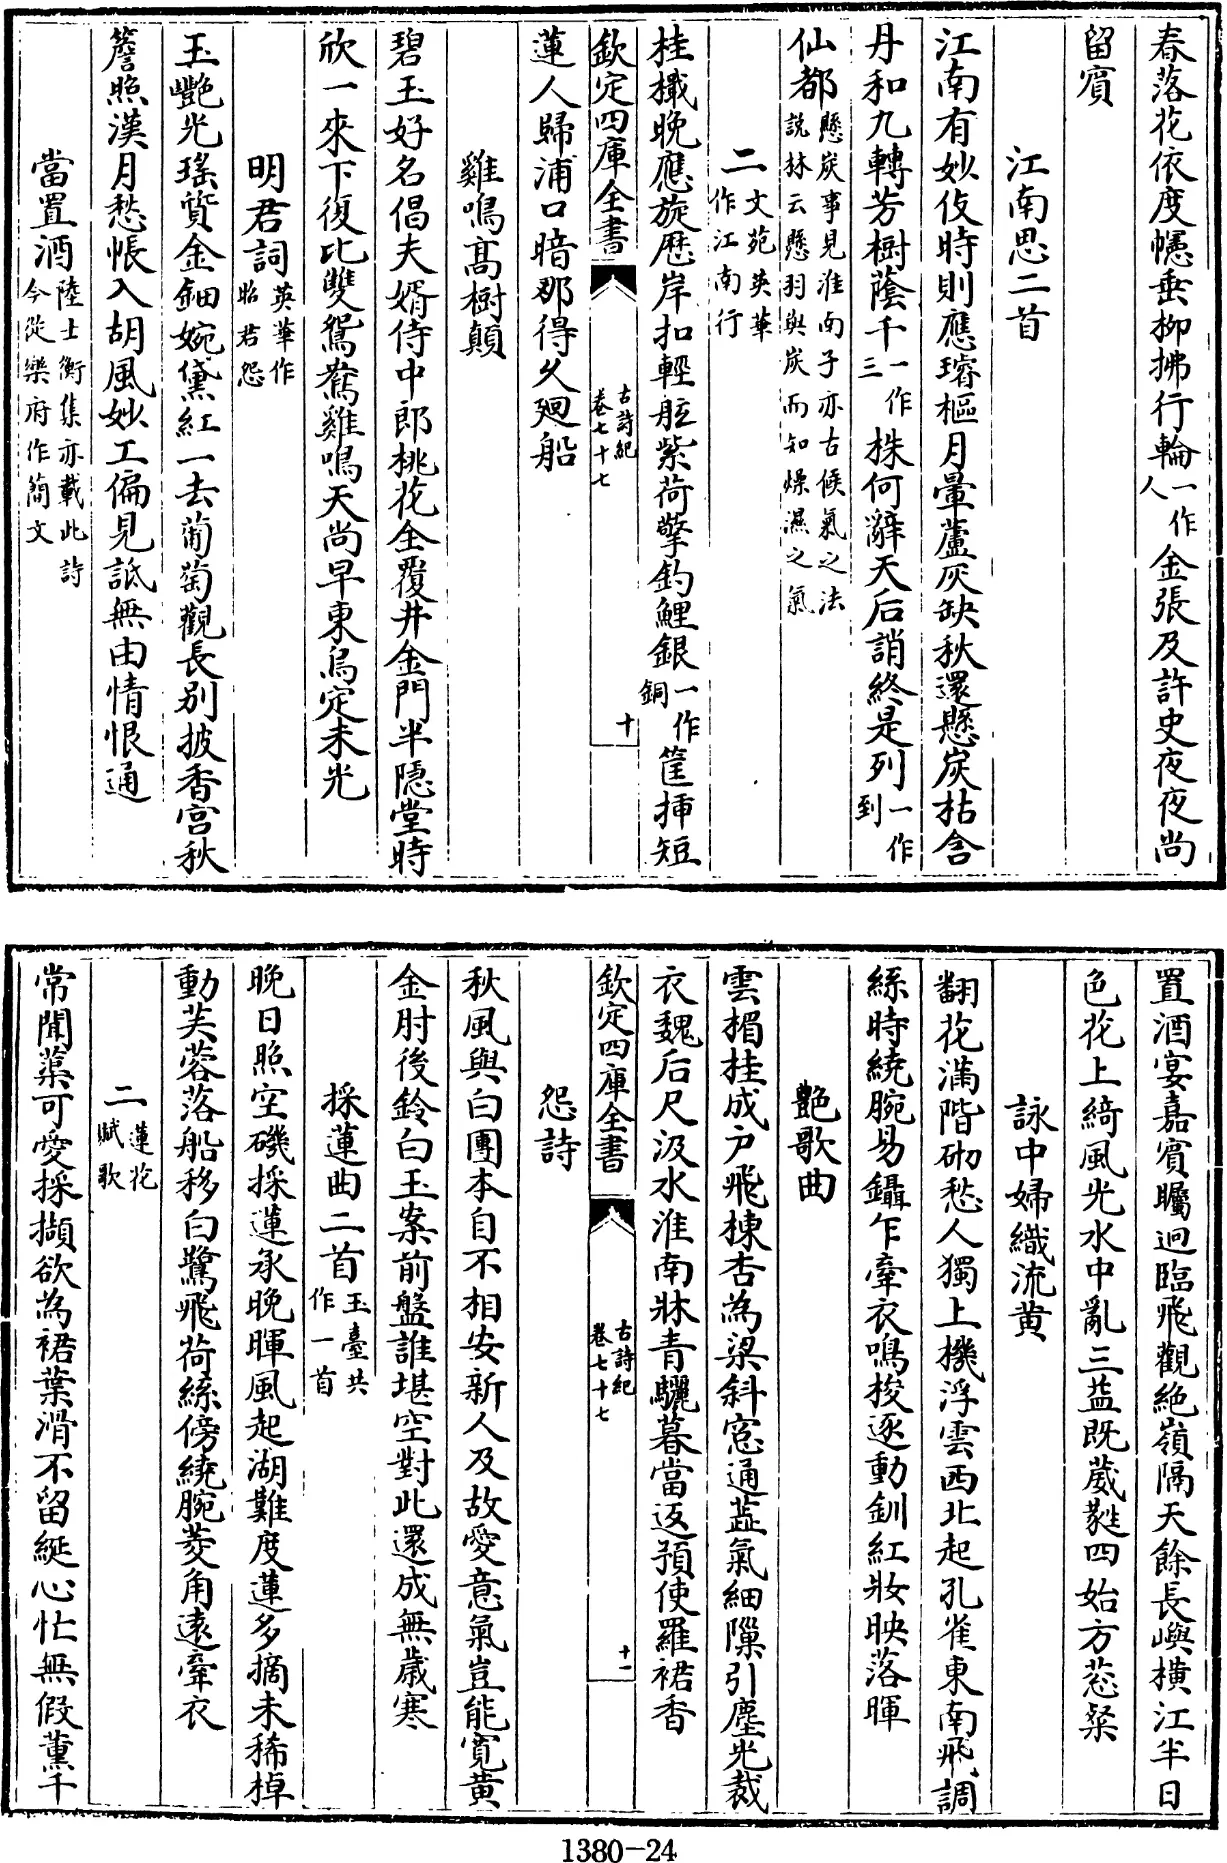 春落花依度幰垂柳拂行輪一作人金張及許史夜夜尚
留賓
江南思二首
江南有妙伎時則應璿樞月暈蘆灰缺秋還懸炭枯含
丹和九轉芳樹蔭千一作三株何辭天后誚終是列一作到
仙都懸炭事見淮南子亦古候氣之法說林云懸羽與炭而知燥濕之氣
二文苑英華作江南行
桂檝晚應旋歷岸扣輕舷紫荷擎釣鯉銀一作銅筐插短
欽定四庫全書
古詩紀卷七十七
十
蓮人歸浦口暗那得久廻船
雞鳴高樹顛
碧玉好名倡夫婿侍中郎桃花全覆井金門半隱堂時
欣一來下復比雙鴛鴦雞鳴天尚早東烏定未光
明君詞英華作昭君怨
玉艷光瑤質金鈿婉黛紅一去葡萄觀長別披香宮秋
簷照漢月愁帳入胡風妙工偏見詆無由情恨通
當置酒陸士衡集亦載此詩今從樂府作簡文
置酒宴嘉賓矚迥臨飛觀絶嶺隔天餘長嶼橫江半日
色花上綺風光水中亂三益既葳蕤四始方葱粲
詠中婦織流黄
翻花滿階砌愁人獨上機浮雲西北起孔雀東南飛調
絲時繞腕易鑷乍牽衣鳴梭逐動釧紅妝映落暉
艶歌曲
雲楣桂成户飛棟杏為梁斜窓通蘂氣細隟引塵光裁
衣魏后尺汲水淮南牀青驪暮當返預使羅裙香
欽定四庫全書
古詩紀卷七十七
十一
怨詩
秋風與白團本自不相安新人及故愛意氣豈能寛黄
金肘後鈴白玉案前盤誰堪空對此還成無歲寒
採蓮曲二首玉臺共作一首
晚日照空磯採蓮承晚暉風起湖難度蓮多摘未稀棹
動芙蓉落船移白鷺飛荷絲傍繞腕菱角遠牽衣
二蓮花賦歌
常聞蕖可愛採擷欲為裙葉滑不留綖心忙無假薰千
1380-24